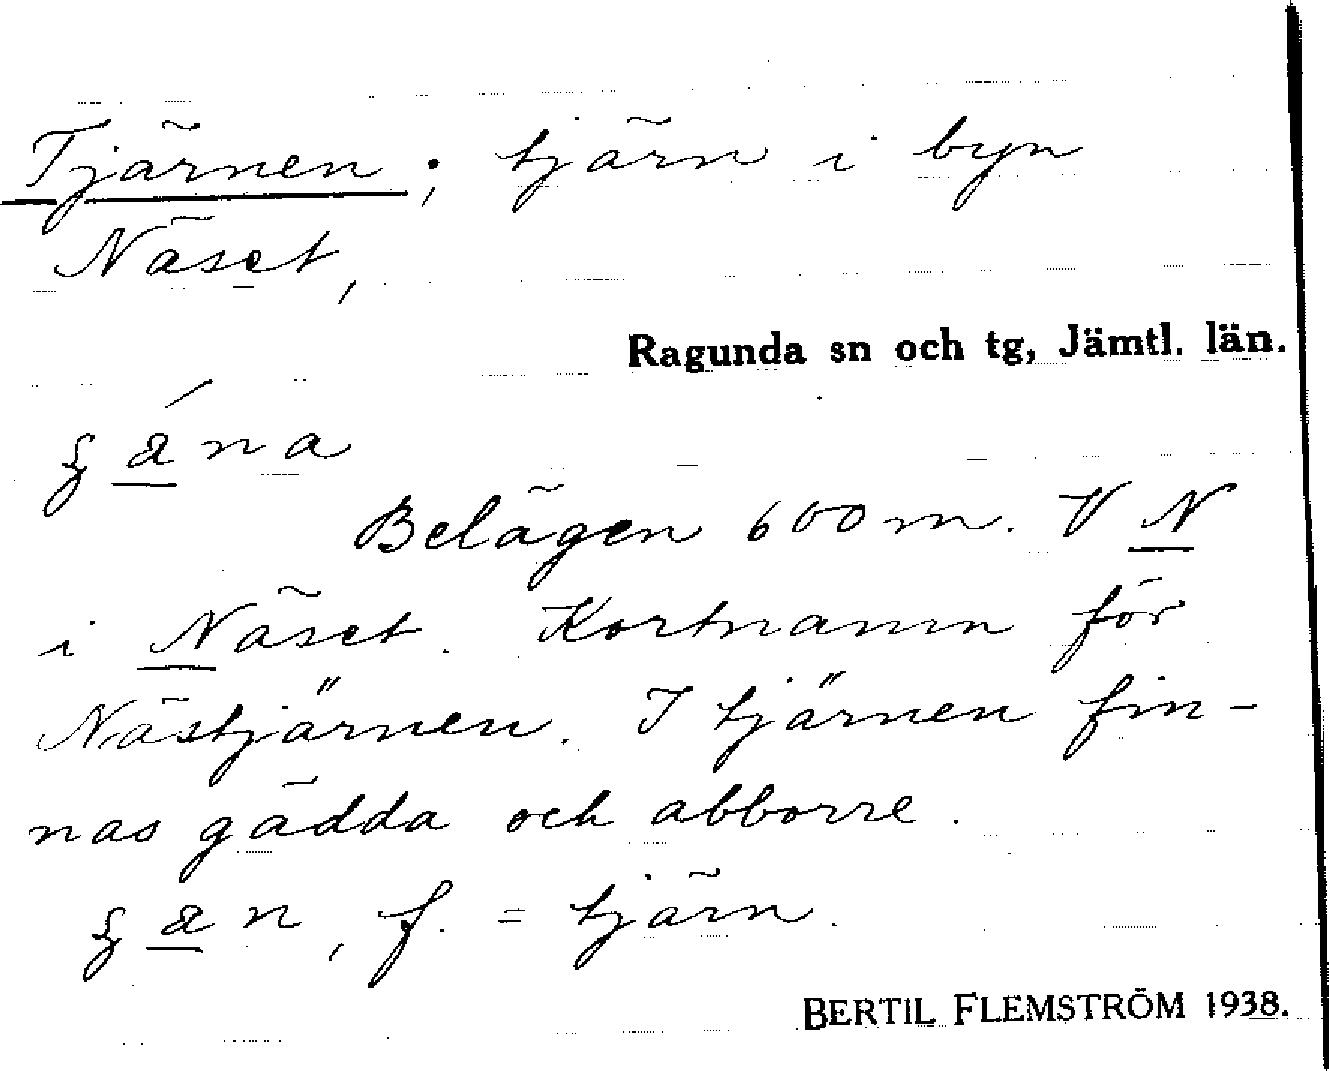 Tjärnen; tjärn i byn
Näset,
Ragunda sn och tg, Jämtl. län.
Belägen 600 m. V N
i Näset. Kortnamn för
Nästjärnen. I tjärnen fin-
nas gädda och abborre.
f. = tjärn.
BERTIL FLEMSTRÖM 1938.